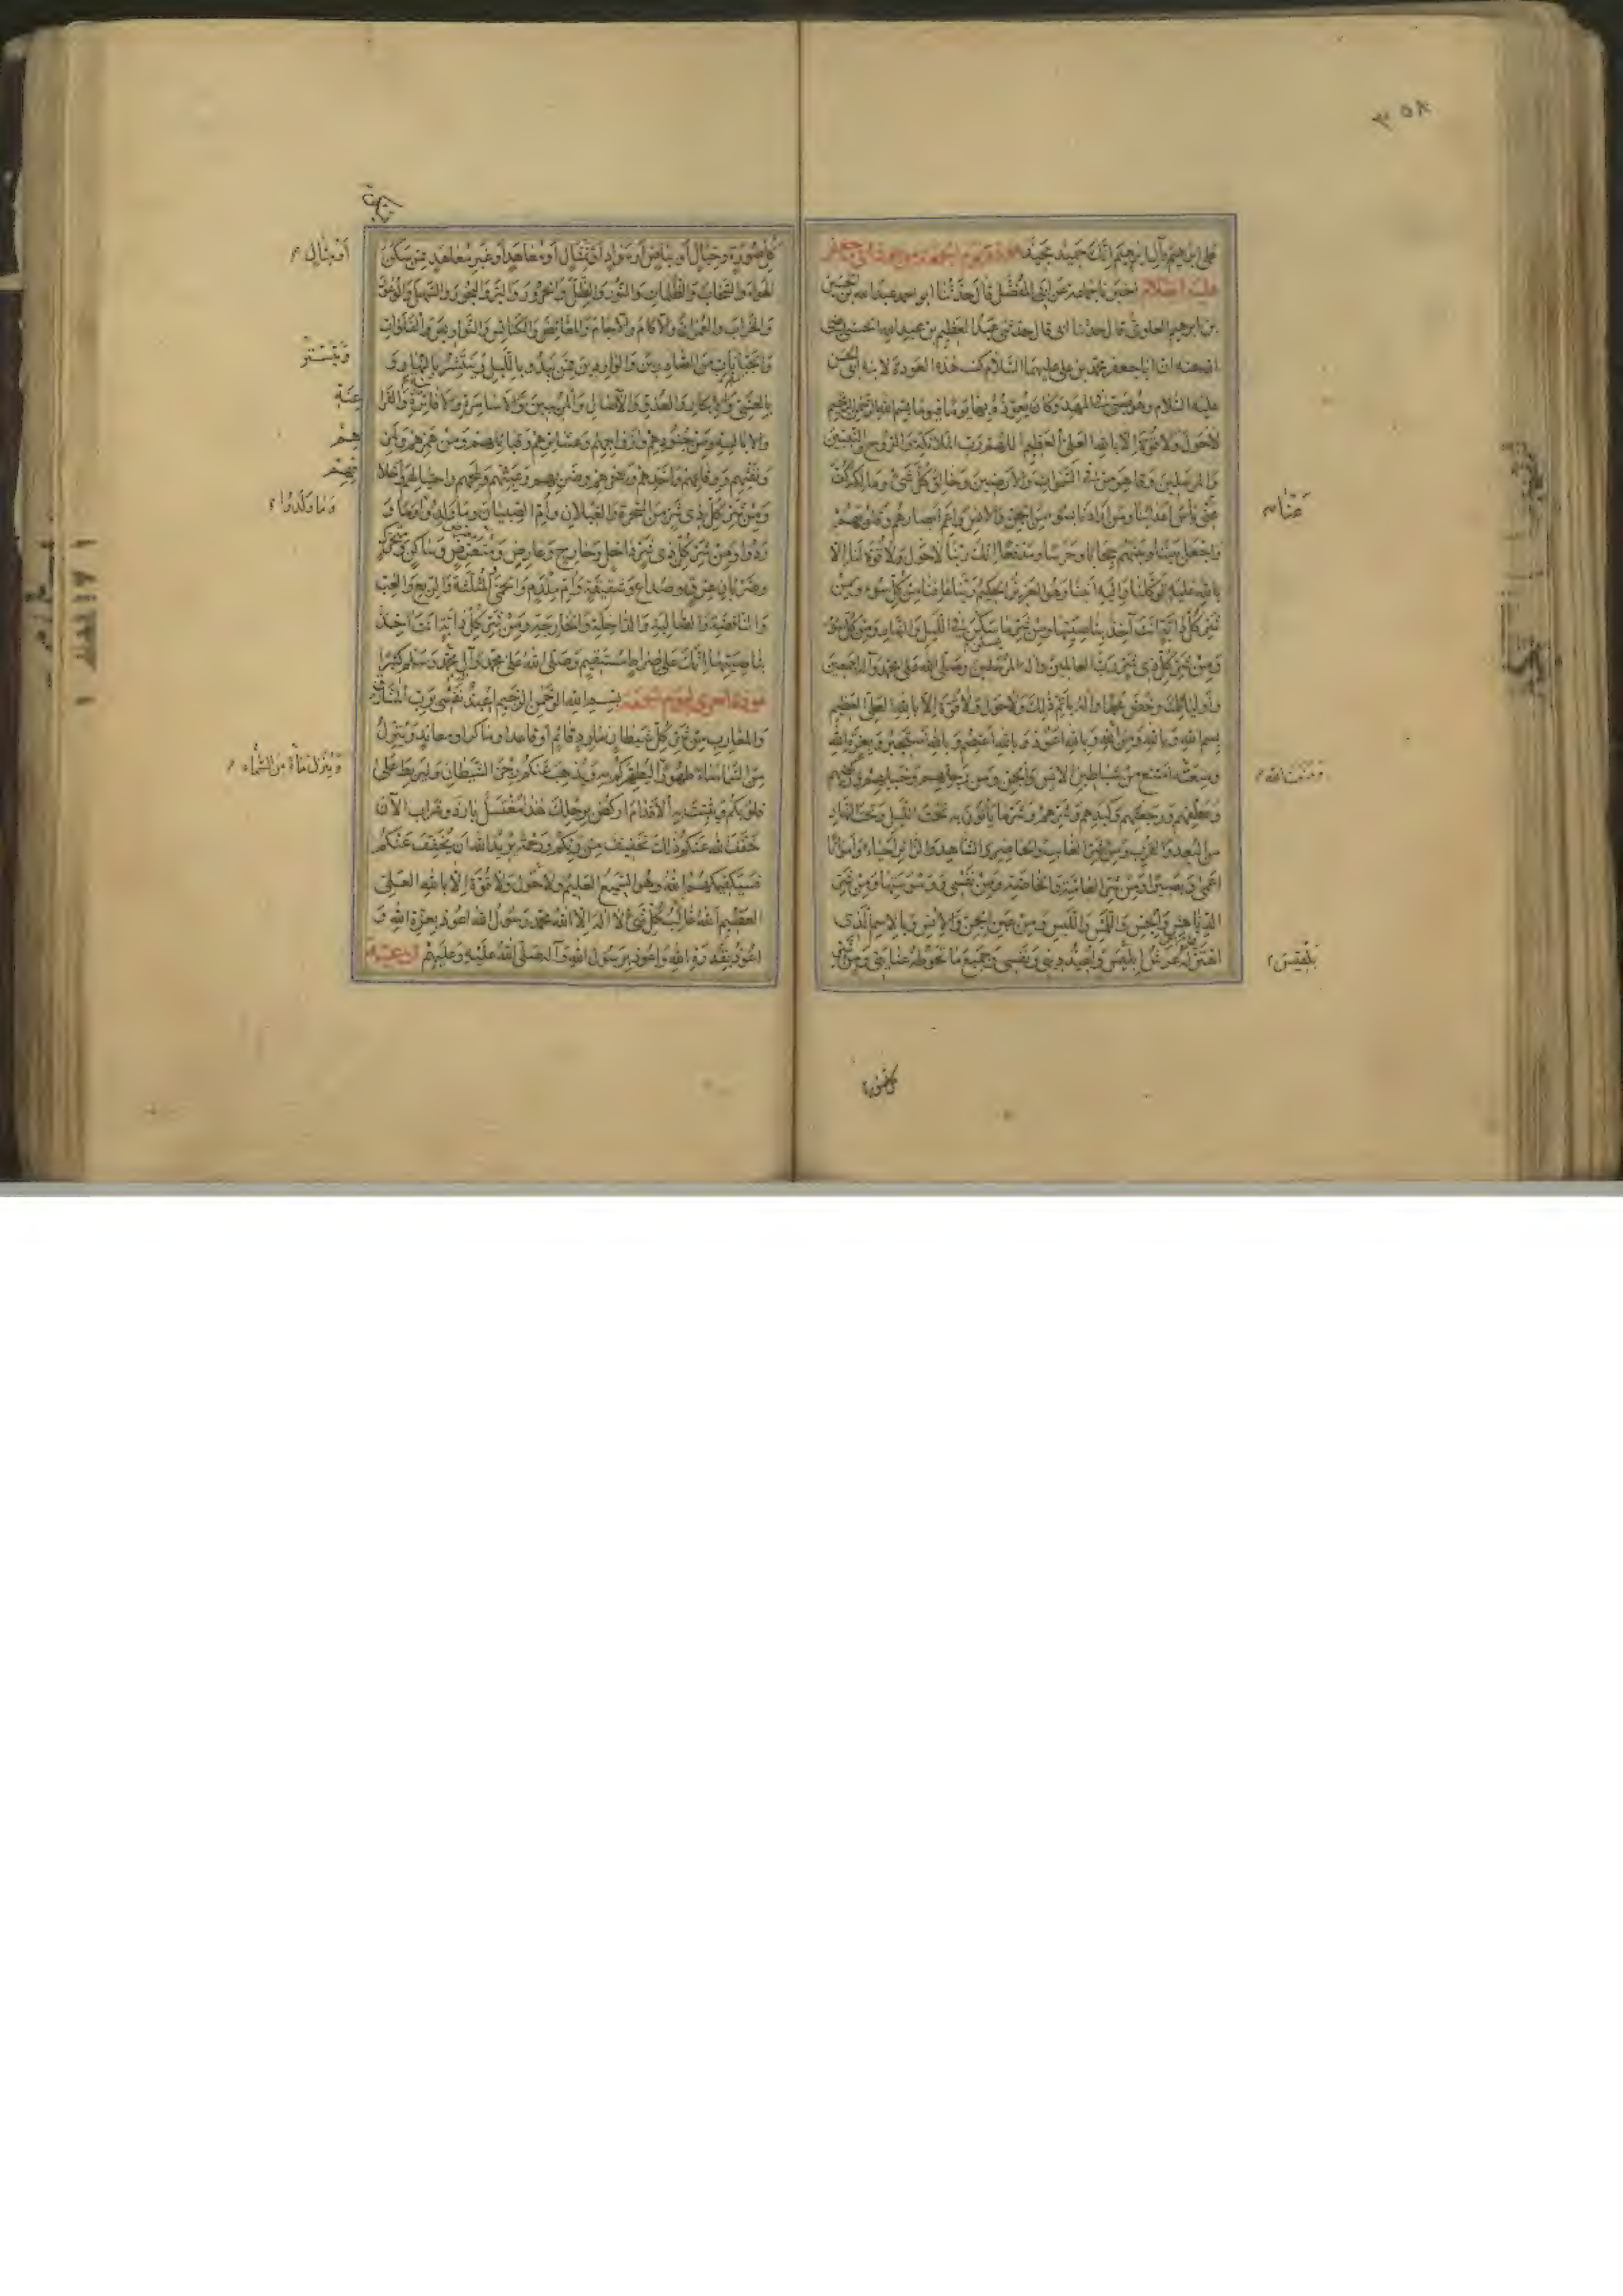 ٣٥٨
على ابرهيم وآل ابرهيم انك حميد مجيد عوذة يوم الجمعة
عليه السلام اخبرنا جماعة عن ابى المفضل قال حدثنا ابو احمد عبد الله بن الحسين
بن ابرهيم العلوى قال حدثنا ابى قال حدثنى عبد العظيم بن عبد الله الحسنى رضى
الله عنه ان ابا جعفر محمد بن على عليهما السلام كتب هذه العوذة لابنه ابى الحسن
عليه السلام وهو صبى فى المهد وكان يعوذه بها يوما فيوما بسم الله الرحمن الرحيم
لا حول ولا قوة الا بالله العلى العظيم اللهم رب الملائكة والروح والنبيين
والمرسلين وقاهر من فى السموات والارضين وخالق كل شئ ومالكه كف
عنى بأس اعدائنا ومن اراد بنا سوء من الجن والانس واعم ابصارهم وقلوبهم
عنا
واجعل بيننا وبينهم حجابا وحرسا ومدفعا انك ربنا لا حول ولا قوة لنا الا
بالله عليه توكلنا واليه انبنا وهو العزيز الحكيم ربنا عافنا من كل سوء ومن
شر كل دابة انت آخذ بناصيتها ومن شر ما سكن فى الليل والنهار ومن كل سوء
ومن شر كل ذى شر رب العالمين واله المرسلين وصلى الله على محمد وآله اجمعين
واوليائك وخص محمدا وآله باتم ذلك ولا حول ولا قوة الا بالله العلى العظيم
بسم الله وبالله ومن الله وبالله اعوذ وبالله اعتصم وبالله استجير وبعزة الله
ومنعة الله
ومنعته امتنع من شياطين الانس والجن ومن رجلهم وخيلهم وركضهم
وعطفهم ورجعتهم وكيدهم وشرهم وشر ما يأتون به تحت الليل وتحت النهار
من البعد والقرب ومن شر الغائب والحاضر والشاهد والزائر احياء وامواتا
اعمى وبصيرا ومن شر العامة والخاصة ومن نفسى ووسوستها ومن شر
الدناهش والحس واللمس واللبس ومن عين الجن والانس وبالاسم الذى
اهتز له عرش بلقيس واعيذ دينى ونفسى وجميع ما تحوطه عنايتى ومن شر
بلقيس
كل صورة
كل صورة وخيال او بياض او سواد او تمثال او معاهد او غير معاهد ممن سكن
او مثال
الهواء والسحاب والظلمات والنور والظل والحرور والبر والبحور والسهل والوعور
والخراب والعمران والآكام والآجام والمغائض والكنائس والنواويس والفلوات
والجبانات من الصادرين والواردين ممن يبدو بالليل وينتشر بالنهار و
ويستتر
بالعشى والابكار والغدو والآصال والمريبين والاسامرة والافاترة والفرا
عنة
والابالسة ومن جنودهم وازواجهم وعشائرهم وقبائلهم ومن همزهم ولمز
هم
ونفثهم ووقاعهم واخذهم وسحرهم وضربهم وعبثهم ولمحهم واحتيالهم واخلا
قهم
ومن شر كل ذى شر من السحرة والغيلان وام الصبيان وما ولدوا وما و
وما ولدوا
ردوا ومن شر كل ذى شر داخل وخارج وعارض ومتعرض وساكن ومتحرك
وضربان عرق وصداع وشقيقة وام ملدم والحمى والمثلثة والربع والغب
والنافضة والصالبة والداخلة والخارجة ومن شر كل دابة انت آخذ
بناصيتها انك على صراط مستقيم وصلى الله على محمد وآل محمد وسلم كثيرا
عوذة اخرى ليوم الجمعة بسم الله الرحمن الرحيم اعيذ نفسى برب المشارق
والمغارب من شر كل شيطان مارد قائم او قاعد او ماكر او معاند وينزل
من السماء ماء طهورا ليطهركم به ويذهب عنكم رجز الشيطان وليربط على
وينزل ماء من السماء
قلوبكم ويثبت به الاقدام اركض برجلك هذا مغتسل بارد وشراب الآن
خفف الله عنكم ذلك تخفيف من ربكم ورحمة يريد الله ان يخفف عنكم
فسيكفيكهم الله وهو السميع العليم ولا حول ولا قوة الا بالله العلى
العظيم الله غالب كل شئ لا اله الا الله محمد رسول الله اعوذ بعزة الله و
اعوذ بقدرة الله واعوذ برسول الله وآله صلى الله عليه وعليهم